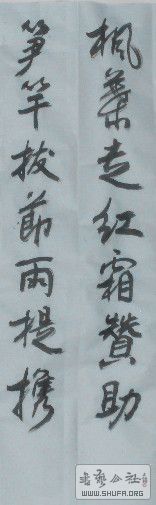 楓葉走紅霜贊助
笋竿拔節雨提携
書藝公社
WWW.SHUFA.ORG